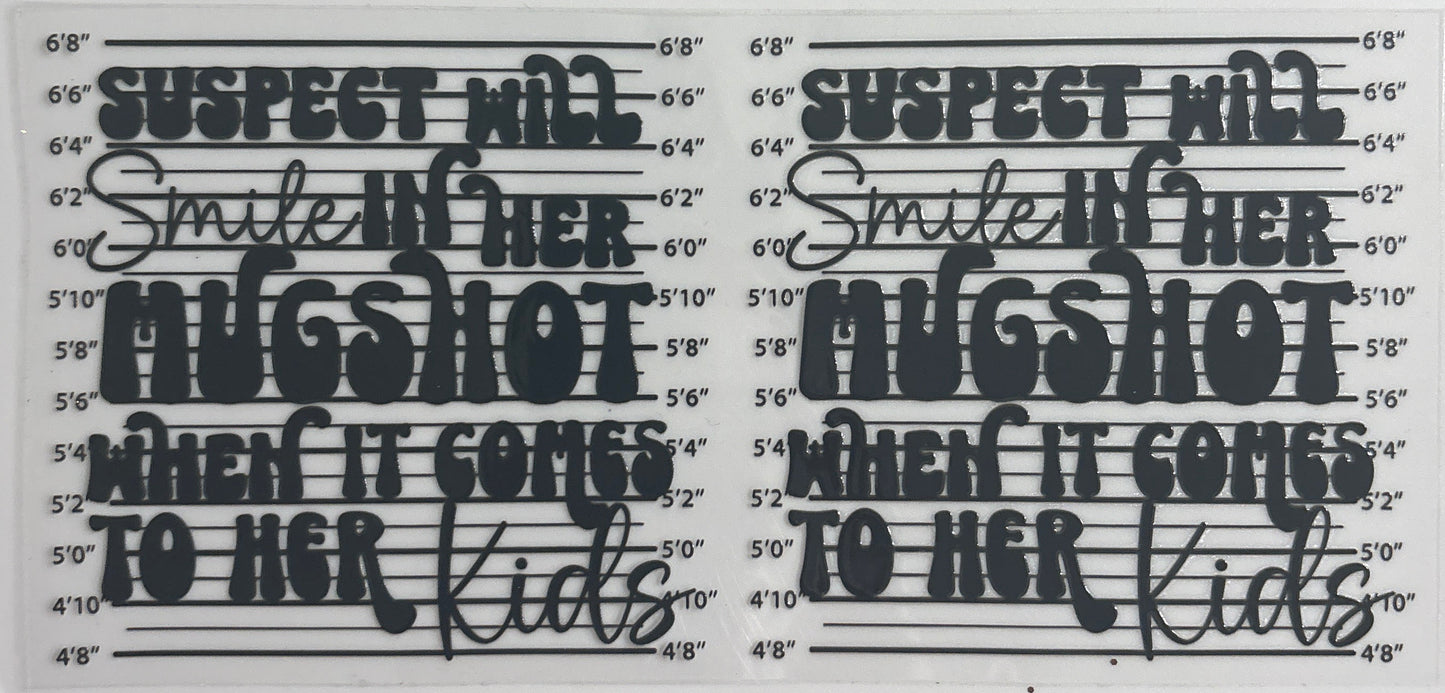 6'8" 6'8"
SUSPECT WILL
6'6" 6'6"
6'4" 6'4"
Smile IN HER
6'2" 6'2"
6'0" 6'0"
MUGSHOT
5'10" 5'10"
5'8" 5'8"
5'6" 5'6"
WHEN IT COMES
5'4 5'4"
5'2 5'2"
TO HER Kids
5'0" 5'0"
4'10" 4'10"
4'8" 4'8"
6'8" 6'8"
SUSPECT WILL
6'6" 6'6"
6'4" 6'4"
Smile IN HER
6'2" 6'2"
6'0" 6'0"
MUGSHOT
5'10" 5'10"
5'8" 5'8"
5'6" 5'6"
WHEN IT COMES
5'4 5'4"
5'2 5'2"
TO HER Kids
5'0" 5'0"
4'10" 4'10"
4'8" 4'8"